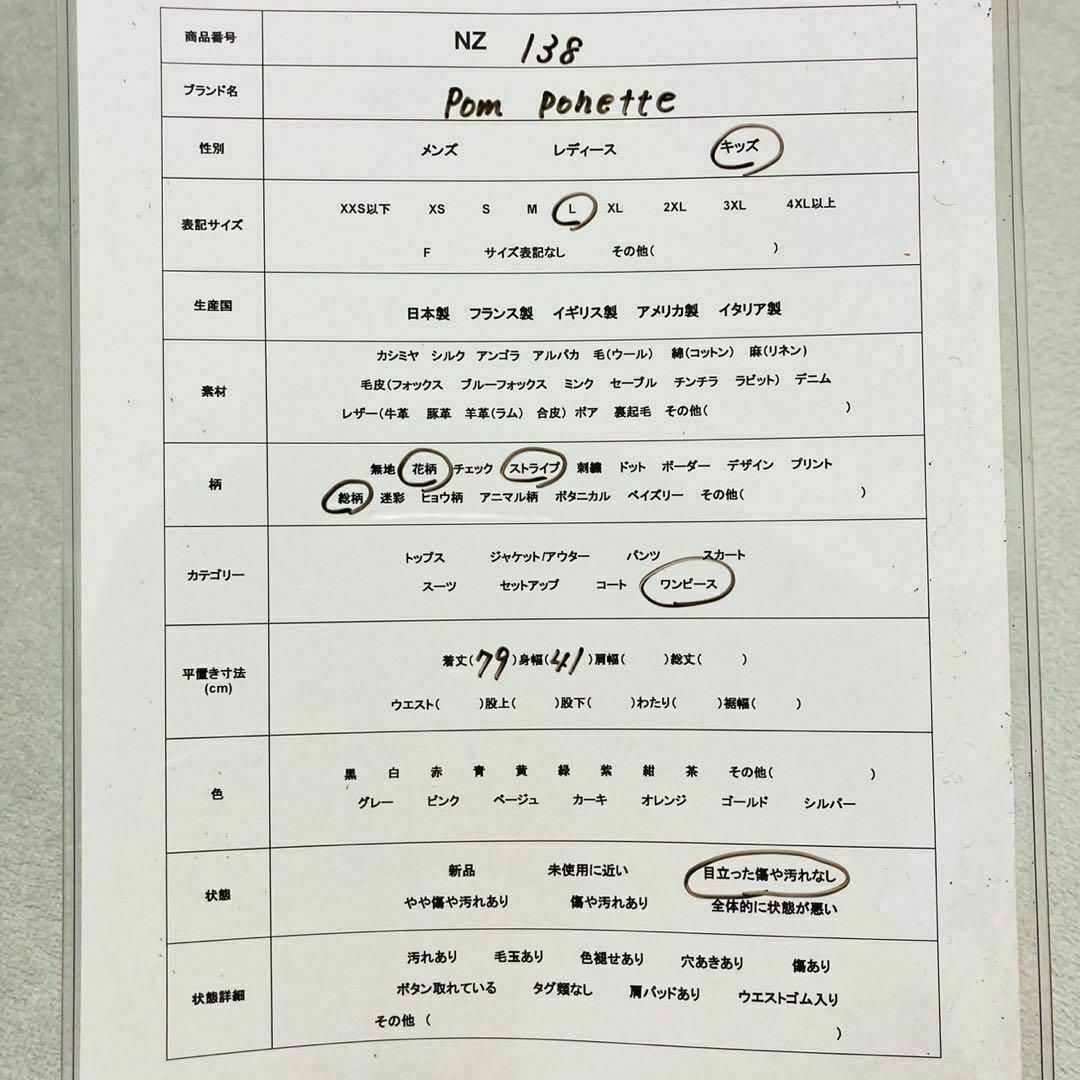 商品番号 NZ 138
ブランド名 Pom ponette
性別 メンズ レディース キッズ
表記サイズ XXS以下 XS S M L XL 2XL 3XL 4XL以上
F サイズ表記なし その他( )
生産国 日本製 フランス製 イギリス製 アメリカ製 イタリア製
素材 カシミヤ シルク アンゴラ アルパカ 毛(ウール) 綿(コットン) 麻(リネン)
毛皮(フォックス ブルーフォックス ミンク セーブル チンチラ ラビット) デニム
レザー(牛革 豚革 羊革(ラム) 合皮) ボア 裏起毛 その他( )
柄 無地 花柄 チェック ストライプ 刺繍 ドット ボーダー デザイン プリント
総柄 迷彩 ヒョウ柄 アニマル柄 ボタニカル ペイズリー その他( )
カテゴリー トップス ジャケット/アウター パンツ スカート
スーツ セットアップ コート ワンピース
平置き寸法
(cm)
着丈(79)身幅(41)肩幅( )総丈( )
ウエスト( )股上( )股下( )わたり( )裾幅( )
色 黒 白 赤 青 黄 緑 紫 紺 茶 その他( )
グレー ピンク ベージュ カーキ オレンジ ゴールド シルバー
状態 新品 未使用に近い 目立った傷や汚れなし
やや傷や汚れあり 傷や汚れあり 全体的に状態が悪い
状態詳細 汚れあり 毛玉あり 色褪せあり 穴あきあり 傷あり
ボタン取れている タグ類なし 肩パッドあり ウエストゴム入り
その他 ( )